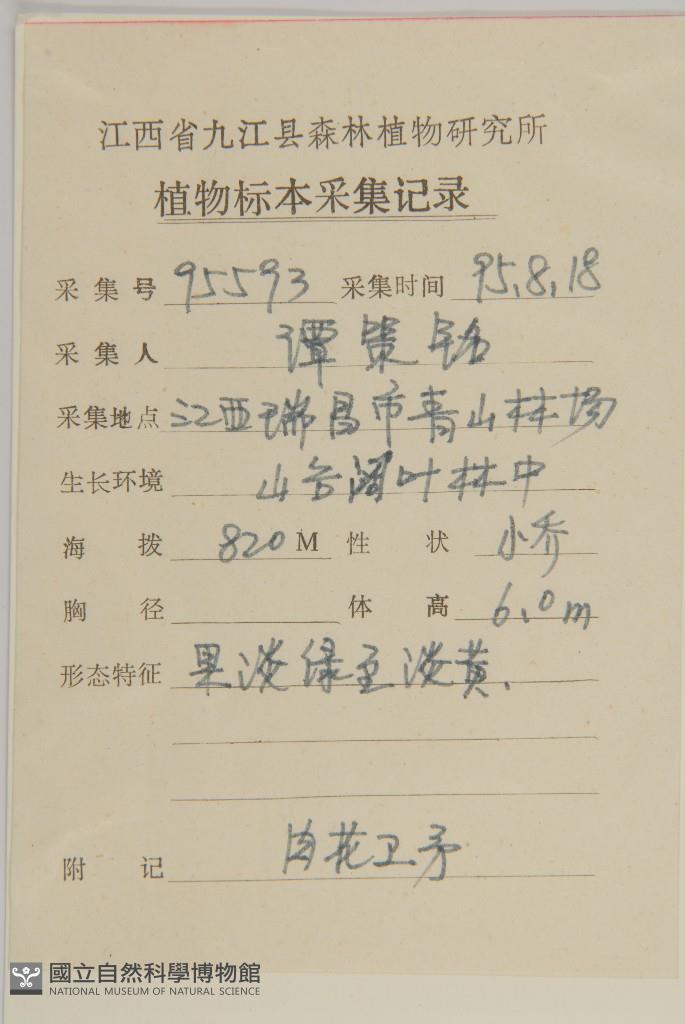 江西省九江县森林植物研究所
植物标本采集记录
采集号 95593 采集时间 95.8.18
采集人 谭策铭
采集地点 江西瑞昌市青山林场
生长环境 山谷阔叶林中
海拨 820 M 性状 小乔
胸径 体高 6.0m
形态特征 果淡绿至淡黄.
附记 肉花卫矛
國立自然科學博物館
NATIONAL MUSEUM OF NATURAL SCIENCE